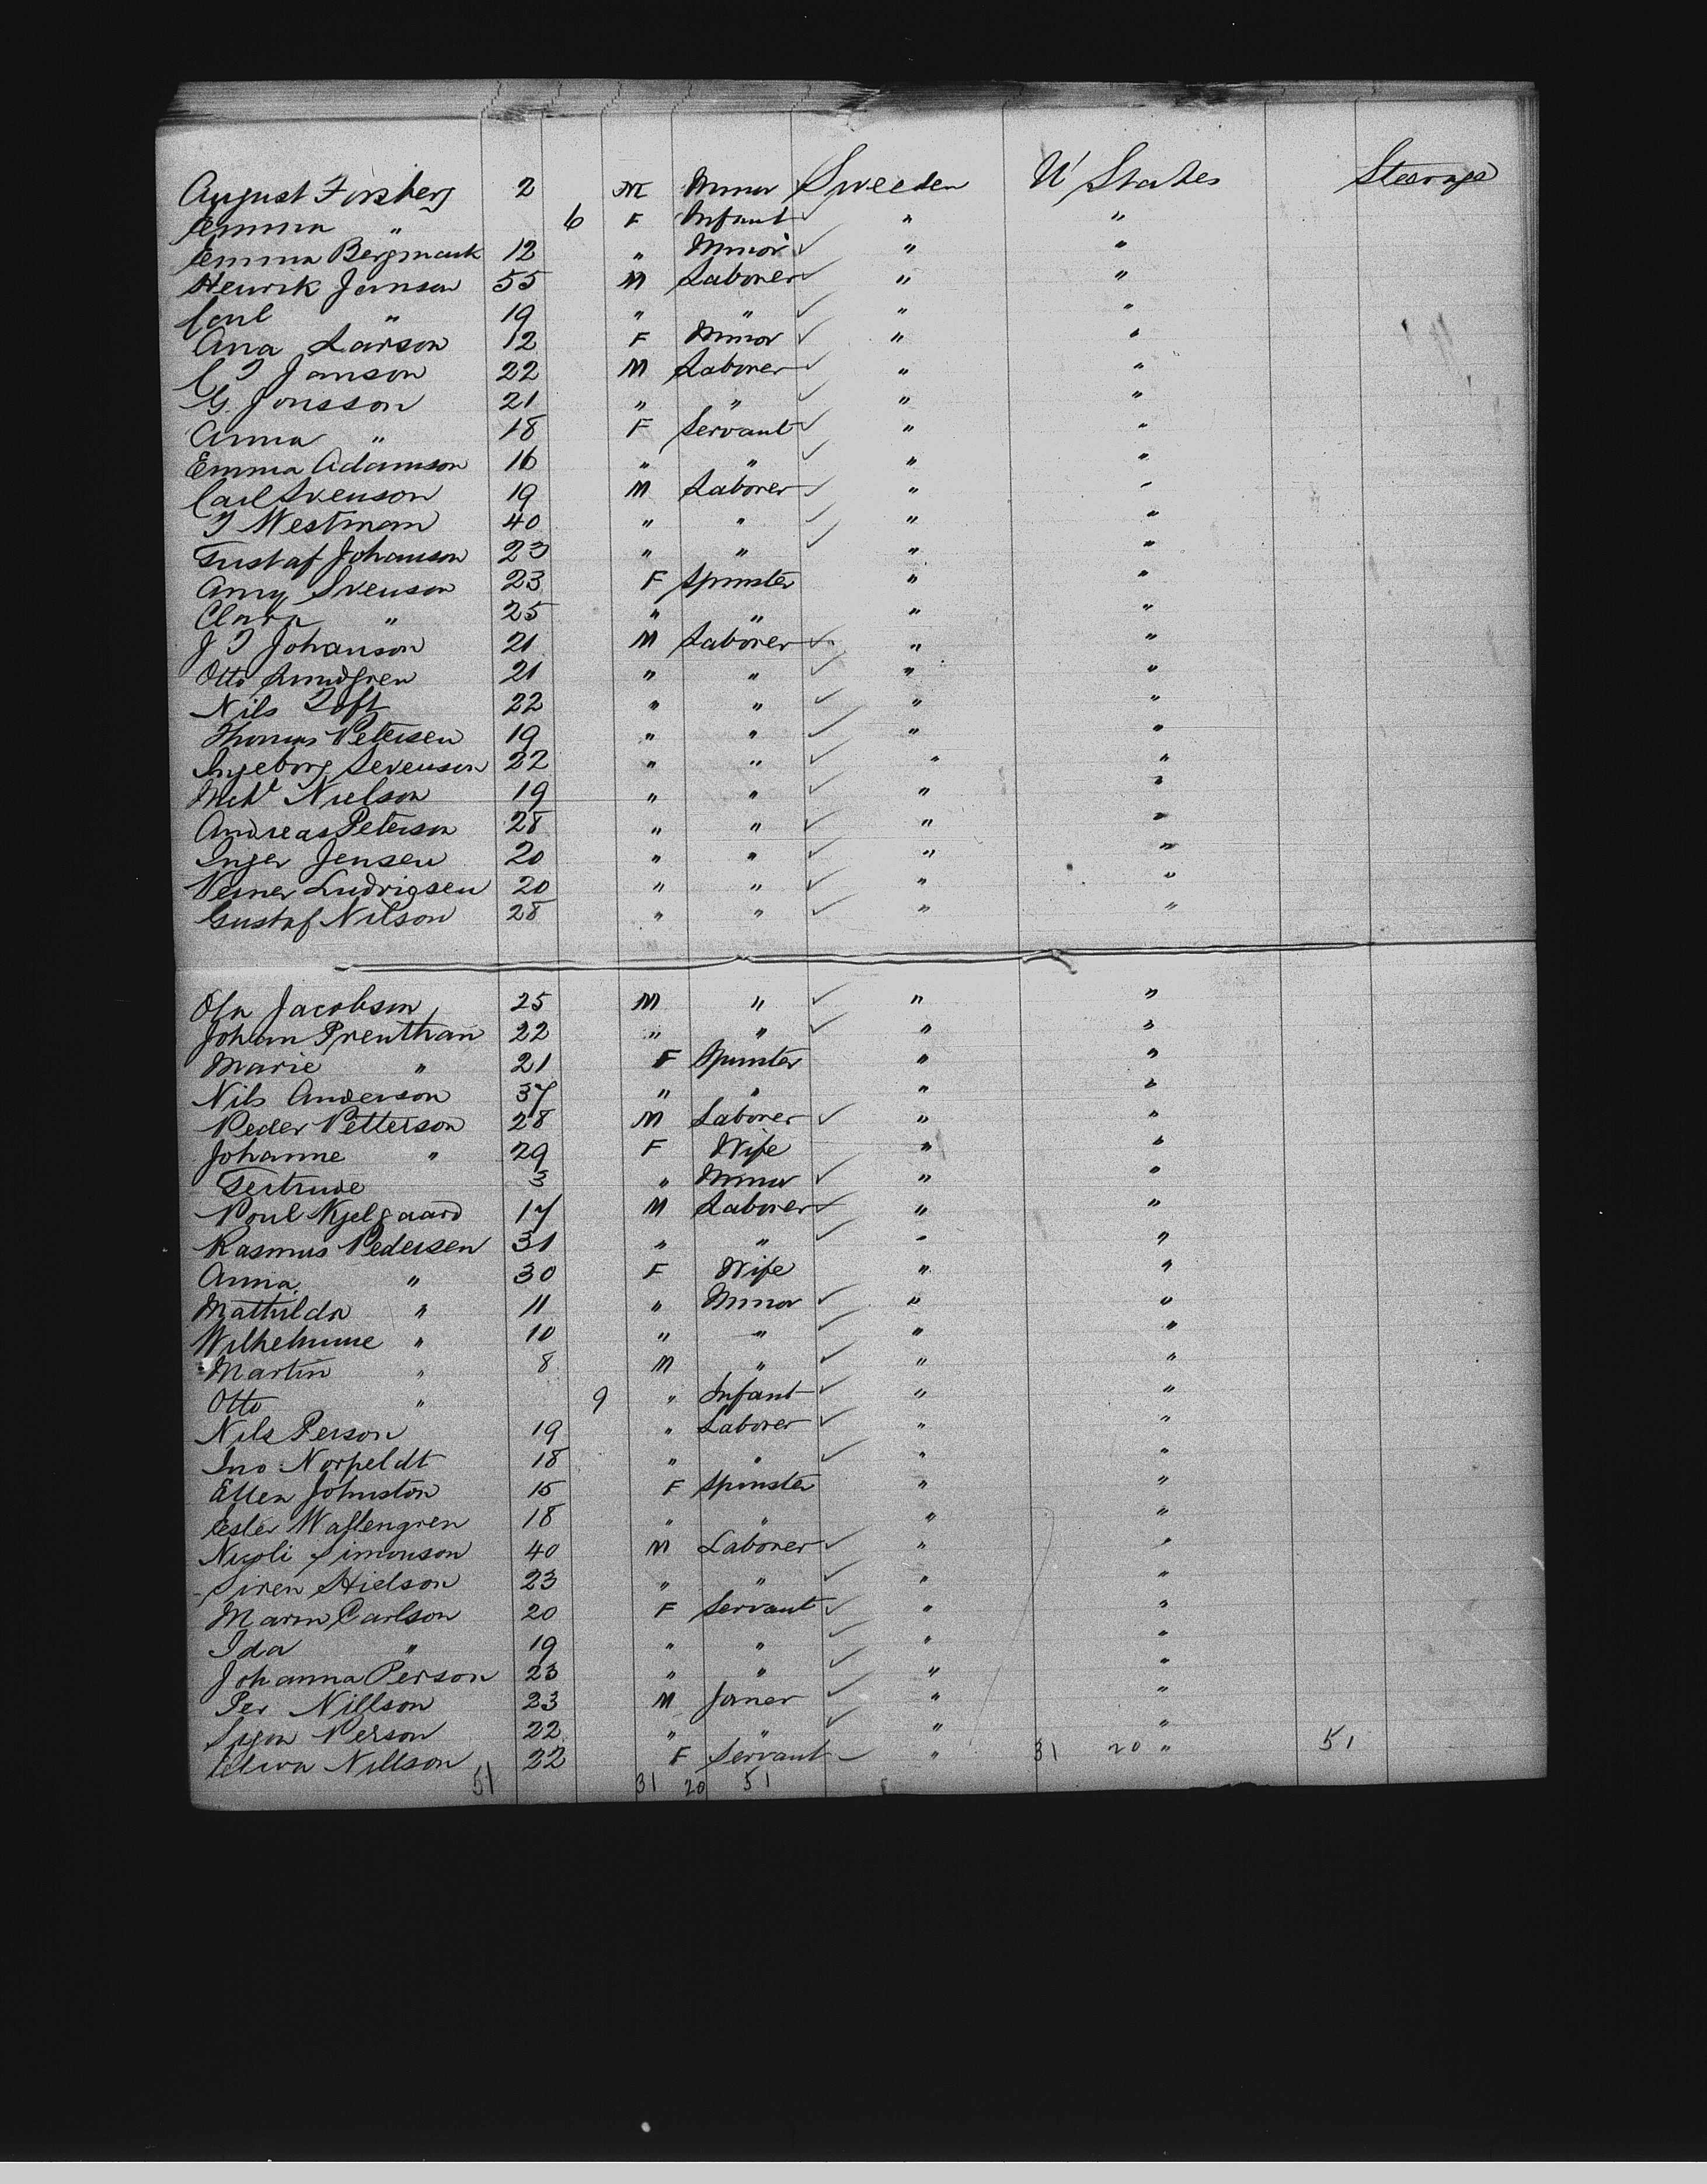 August Forsberg 2 M Minor Sweeden U States Steerage
Emma " 6 F Infant " "
Emma Bergmark 12 " Minor " "
Henrik Janson 55 M Laborer " "
Carl " 19 " " " "
Ana Larson 12 F Minor " "
C J Janson 22 M Laborer " "
G. Jonsson 21 " " " "
Anna " 18 F Servant " "
Emma Adamson 16 " " " "
Carl Svenson 19 M Laborer " "
J Westman 40 " " " "
Gustaf Johanson 23 " " " "
Amy Svenson 23 F Spinster " "
Clara " 25 " " " "
J J Johanson 21 M Laborer " "
Otto Lundgren 21 " " " "
Nils Toft 22 " " " "
Thomas Petersen 19 " " " "
Ingeborg Sevenson 22 " " " "
Nielson 19 " " " "
Andreas Peterson 28 " " " "
Inger Jensen 20 " " " "
Verner Ludvigsen 20 " " " "
Gustaf Nilson 28 " " " "
Ola Jacobson 25 M " " "
Johan Prenthan 22 " " " "
Marie " 21 F Spinster " "
Nils Anderson 37 " " " "
Peder Petterson 28 M Laborer " "
Johanne " 29 F Wife " "
Gertrude 3 " Minor " "
Poul Kjelgaard 17 M Laborer " "
Rasmus Pedersen 31 " " " "
Anna " 30 F Wife " "
Mathilda " 11 " Minor " "
Wilhelmine " 10 " " " "
Martin " 8 M " " "
Otto " 9 " Infant " "
Nils Person 19 " Laborer " "
Jno Norfeldt 18 " " " "
Ellen Johnston 15 F Spinster " "
Ester Wallengren 18 " " " "
Nicoli Simonson 40 M Laborer " "
Siren Hielson 23 " " " "
Marin Carlson 20 F Servant " "
Ida " 19 " " " "
Johanna Person 23 " " " "
Per Nillson 23 M Joner " "
Person 22 " " " "
Nillson 22 F Servant " 31 20 " 51
51 31 20 51